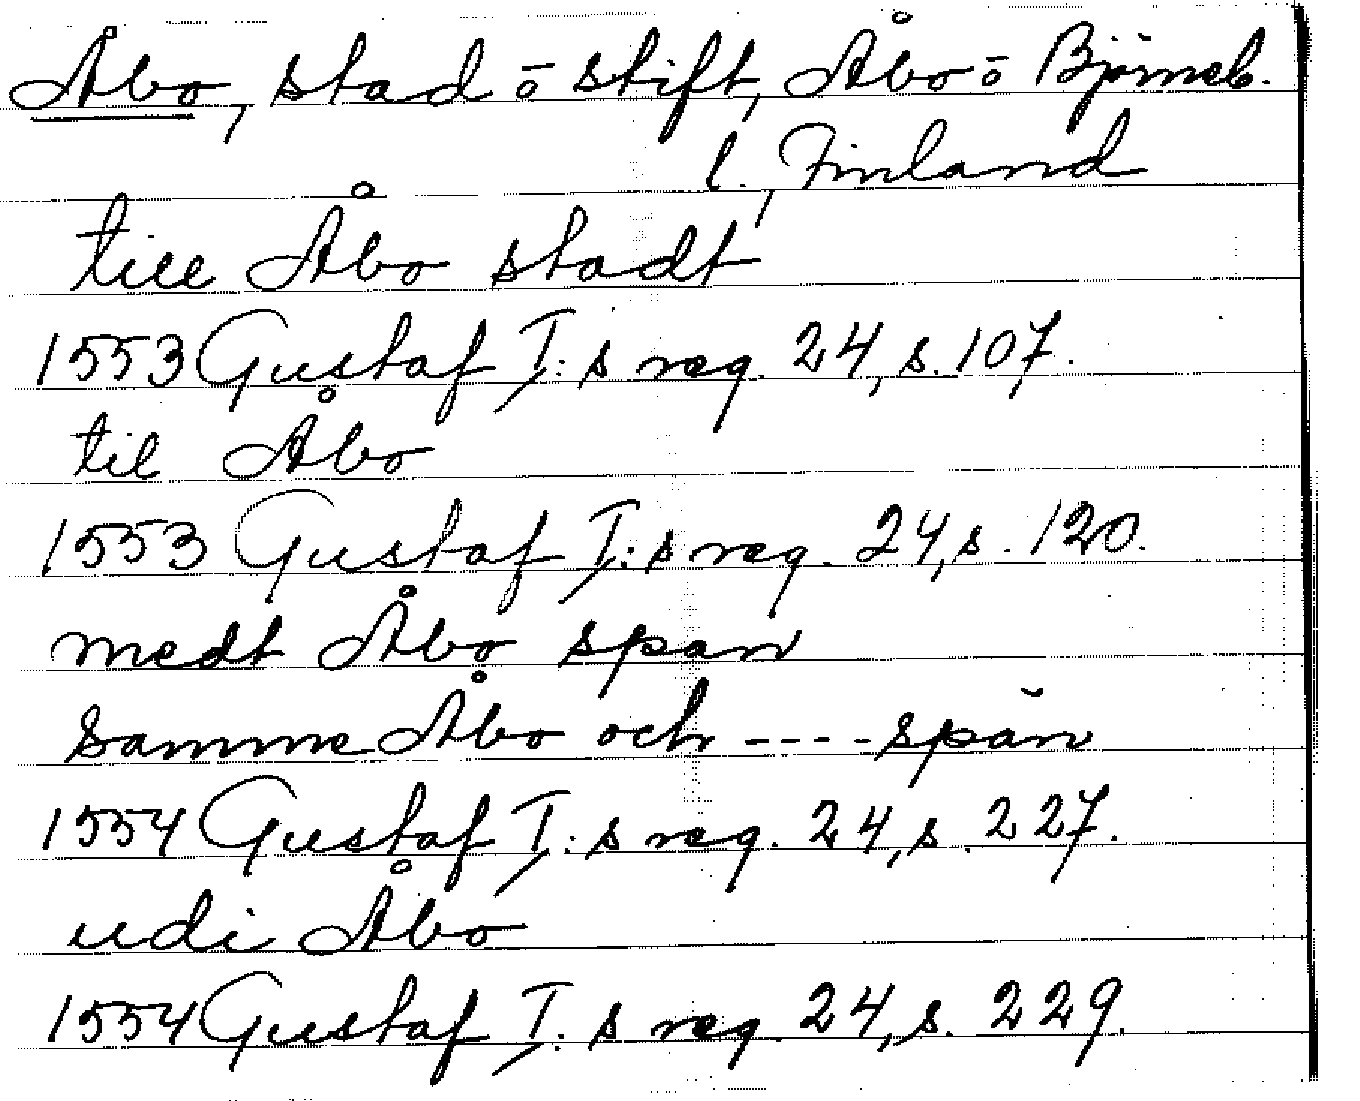 Åbo, stad ō stift, Åbo ō Björneb.
l., Finland
till Åbo stadt
1553 Gustaf I:s reg. 24, s. 107.
til Åbo
1553 Gustaf I:s reg. 24, s. 120.
medt Åbo span
samme Åbo och ---- spān
1554 Gustaf I:s reg. 24, s. 227.
udi Åbo
1554 Gustaf I:s reg. 24, s. 229.